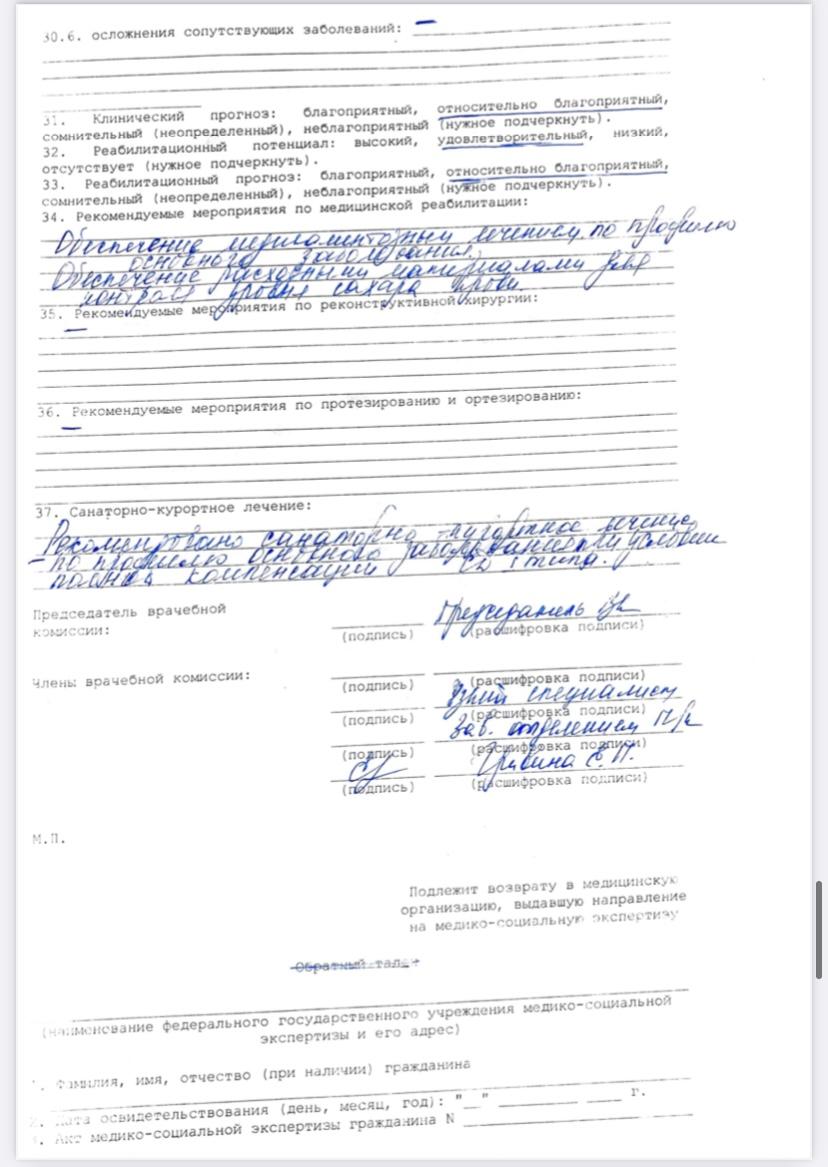 30.6. осложнения сопутствующих заболеваний: —
31. Клинический прогноз: благоприятный, относительно благоприятный,
сомнительный (неопределенный), неблагоприятный (нужное подчеркнуть).
32. Реабилитационный потенциал: высокий, удовлетворительный, низкий,
отсутствует (нужное подчеркнуть).
33. Реабилитационный прогноз: благоприятный, относительно благоприятный,
сомнительный (неопределенный), неблагоприятный (нужное подчеркнуть).
34. Рекомендуемые мероприятия по медицинской реабилитации:
Обеспечение медикаментозным лечением по профилю
основного заболевания.
Обеспечение расходными материалами для
контроля уровня сахара крови.
35. Рекомендуемые мероприятия по реконструктивной хирургии:
—
36. Рекомендуемые мероприятия по протезированию и ортезированию:
—
37. Санаторно-курортное лечение:
Рекомендовано санаторно-курортное лечение
по профилю основного заболевания при условии
полной компенсации СД 1 типа.
Председатель врачебной
комиссии: Председатель ВК
(подпись) (расшифровка подписи)
Члены врачебной комиссии:
(подпись) (расшифровка подписи)
Узкий специалист
(подпись) (расшифровка подписи)
Зав. отделением П/к
(подпись) (расшифровка подписи)
Е. П.
(подпись) (расшифровка подписи)
М.П.
Подлежит возврату в медицинскую
организацию, выдавшую направление
на медико-социальную экспертизу
Обратный талон
(наименование федерального государственного учреждения медико-социальной
экспертизы и его адрес)
1. Фамилия, имя, отчество (при наличии) гражданина
2. Дата освидетельствования (день, месяц, год): "__" ________ ____ г.
3. Акт медико-социальной экспертизы гражданина N